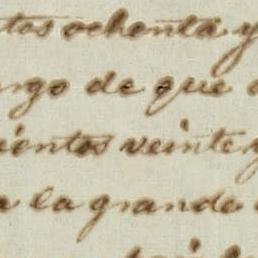 tos ochenta y
ngo de que
ientos veinte y
a la grande